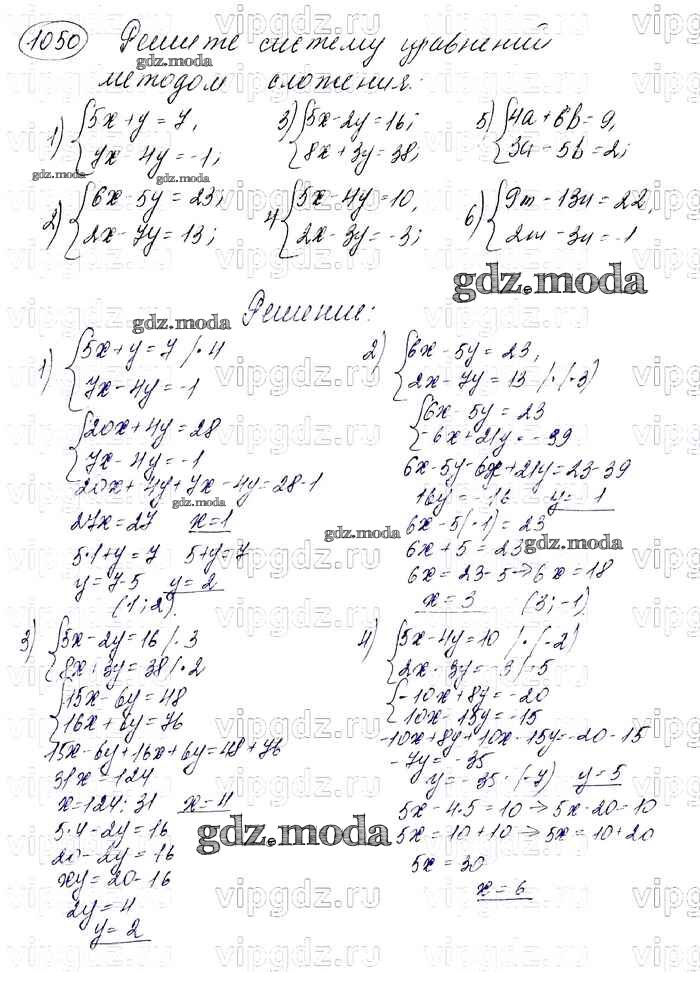 1050 Решите систему уравнений
методом сложения:
1) {5x + y = 7,
7x - 4y = -1;
3) {5x - 2y = 16;
8x + 3y = 38;
5) {4a + 6b = 9,
3a - 5b = 2;
2) {6x - 5y = 23;
2x - 7y = 13;
4) {5x - 4y = 10,
2x - 3y = -3;
6) {9m - 13n = 22,
2m - 3n = -1
Решение:
1) {5x + y = 7 /·4
7x - 4y = -1
{20x + 4y = 28
7x - 4y = -1
20x + 4y + 7x - 4y = 28 - 1
27x = 27 x = 1
5·1 + y = 7 5 + y = 7
y = 7 - 5 y = 2
(1; 2)
2) {6x - 5y = 23,
2x - 7y = 13 /·(-3)
{6x - 5y = 23
-6x + 21y = -39
6x - 5y - 6x + 21y = 23 - 39
16y = -16 y = -1
6x - 5(-1) = 23
6x + 5 = 23
6x = 23 - 5 → 6x = 18
x = 3 (3; -1)
3) {5x - 2y = 16 /·3
8x + 3y = 38 /·2
{15x - 6y = 48
16x + 6y = 76
15x - 6y + 16x + 6y = 48 + 76
31x = 124
x = 124 : 31 x = 4
5·4 - 2y = 16
20 - 2y = 16
xy = 20 - 16
2y = 4
y = 2
4) {5x - 4y = 10 /·(-2)
2x - 3y = -3 /·5
{-10x + 8y = -20
10x - 15y = -15
-10x + 8y + 10x - 15y = -20 - 15
-7y = -35
y = -35 : (-7) y = 5
5x - 4·5 = 10 → 5x - 20 = 10
5x = 10 + 10 → 5x = 10 + 20
5x = 30
x = 6
gdz.moda
vipgdz.ru